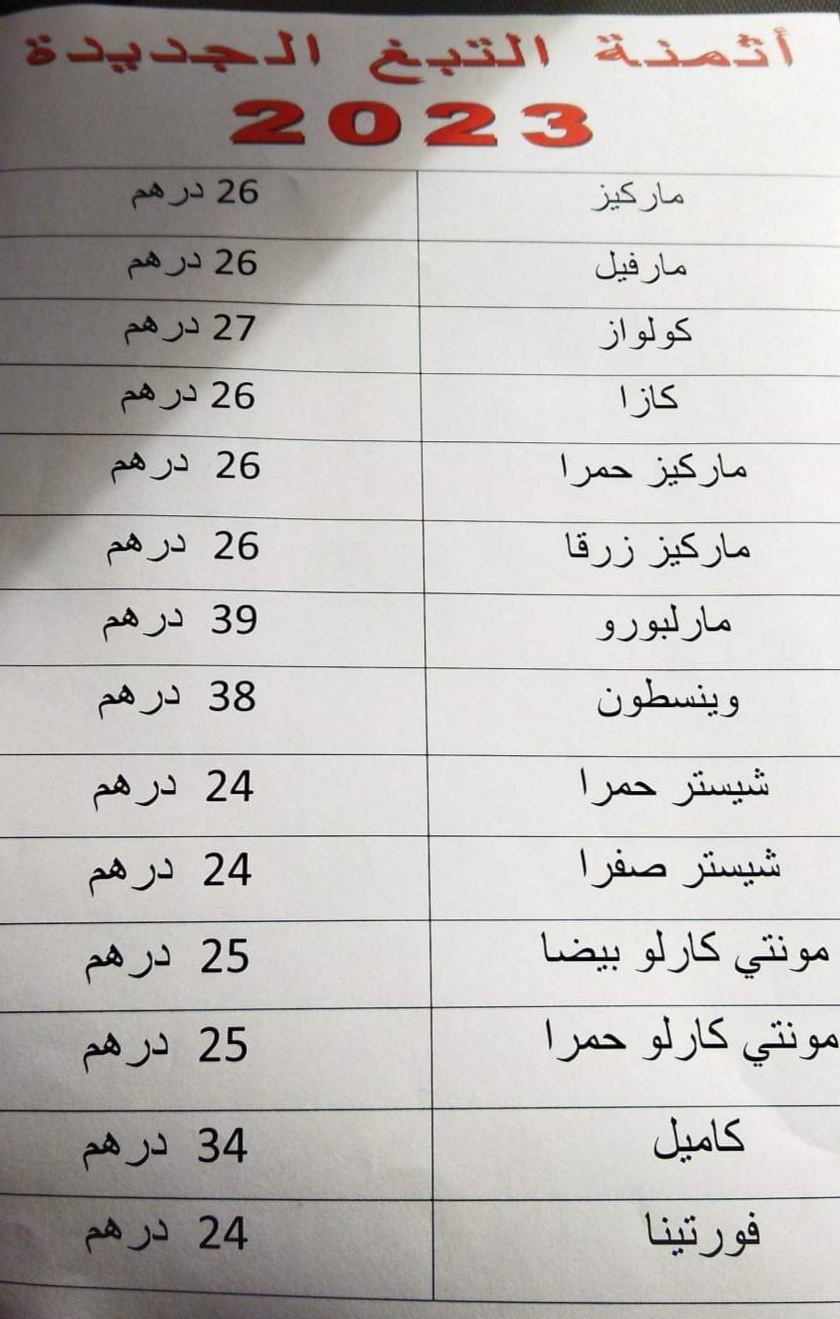 أثمنة التبغ الجديدة
2023
ماركيز 26 درهم
مارفيل 26 درهم
كولواز 27 درهم
كازا 26 درهم
ماركيز حمرا 26 درهم
ماركيز زرقا 26 درهم
مارلبورو 39 درهم
وينسطون 38 درهم
شيستر حمرا 24 درهم
شيستر صفرا 24 درهم
مونتي كارلو بيضا 25 درهم
مونتي كارلو حمرا 25 درهم
كاميل 34 درهم
فورتينا 24 درهم